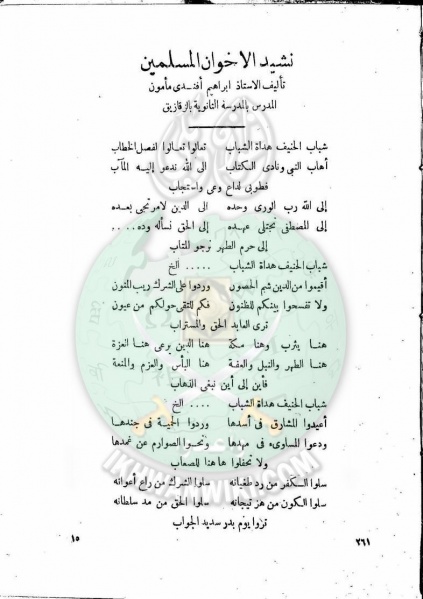 نشيد الاخوان المسلمين
تأليف الاستاذ ابراهيم أفندى مأمون
المدرس بالمدرسة الثانوية بالزقازيق
شباب الحنيف هداة الشباب تعالوا تعالوا لفصل الخطاب
أهاب النبي ونادى الكتاب الى الله ندعو إليه المآب
فطوبى لداع وعى واستجاب
إلى الله رب الورى وحده الى الدين لا نرتجى بعده
إلى المصطفى نجتلى عهده إلى الحق نسأله وده....
إلى حرم الطهر نرجو المتاب
شباب الحنيف هداة الشباب ..... الخ
أقيموا من الدين شم الحصون وردوا على الشرك ريب المنون
ولا تفسحوا بينكم للظنون فكم للتقى حولكم من عيون
ترى العابد الحق والمستراب
هنا يثرب وهنا مكة هنا الدين يرعى هنا العزة
هنا الطهر والنبل والعفة هنا البأس والعزم والمنعة
فأين إلى أين نبغى الذهاب
شباب الحنيف هداة الشباب .... الخ
أعيدوا المشارق فى أسدها وردوا الحمية فى جندها
ودعوا المساوىء فى مهدها ونحوا الصوارم عن غمدها
ولا تحفلوا ها هنا للصعاب
سلوا الكفر من رد طغيانه سلوا الشرك من راع أعوانه
سلوا الكون من هز تيجانه سلوا الحق من مد سلطانه
تروا يوم بدر سديد الجواب
٢٦١
١٥
IKHWANWIKI.COM